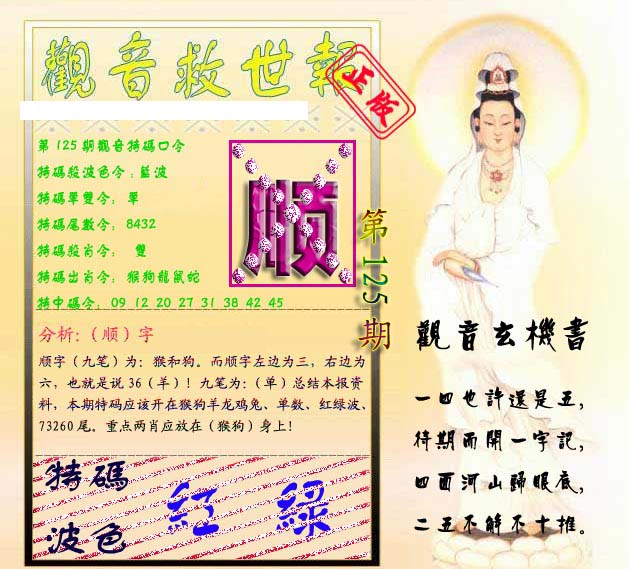 觀音救世報
正版
第125期觀音特碼口令
特碼殺波色令:藍波
特碼單雙令: 單
特碼尾數令: 8432
特碼殺肖令: 雙
特碼出肖令: 猴狗龍鼠蛇
特中碼令: 09 12 20 27 31 38 42 45
顺
第125期
分析:(顺)字
顺字(九笔)为:猴和狗。而顺字左边为三,右边为
六,也就是说36(羊)!九笔为:(单)总结本报资
料,本期特码应该开在猴狗羊龙鸡兔、单数、红绿波、
73260尾。重点两肖应放在(猴狗)身上!
特碼
波色
紅 綠
觀音玄機書
一四也許還是五,
待期而開一字記,
四面河山歸眼底,
二五不解不十推。